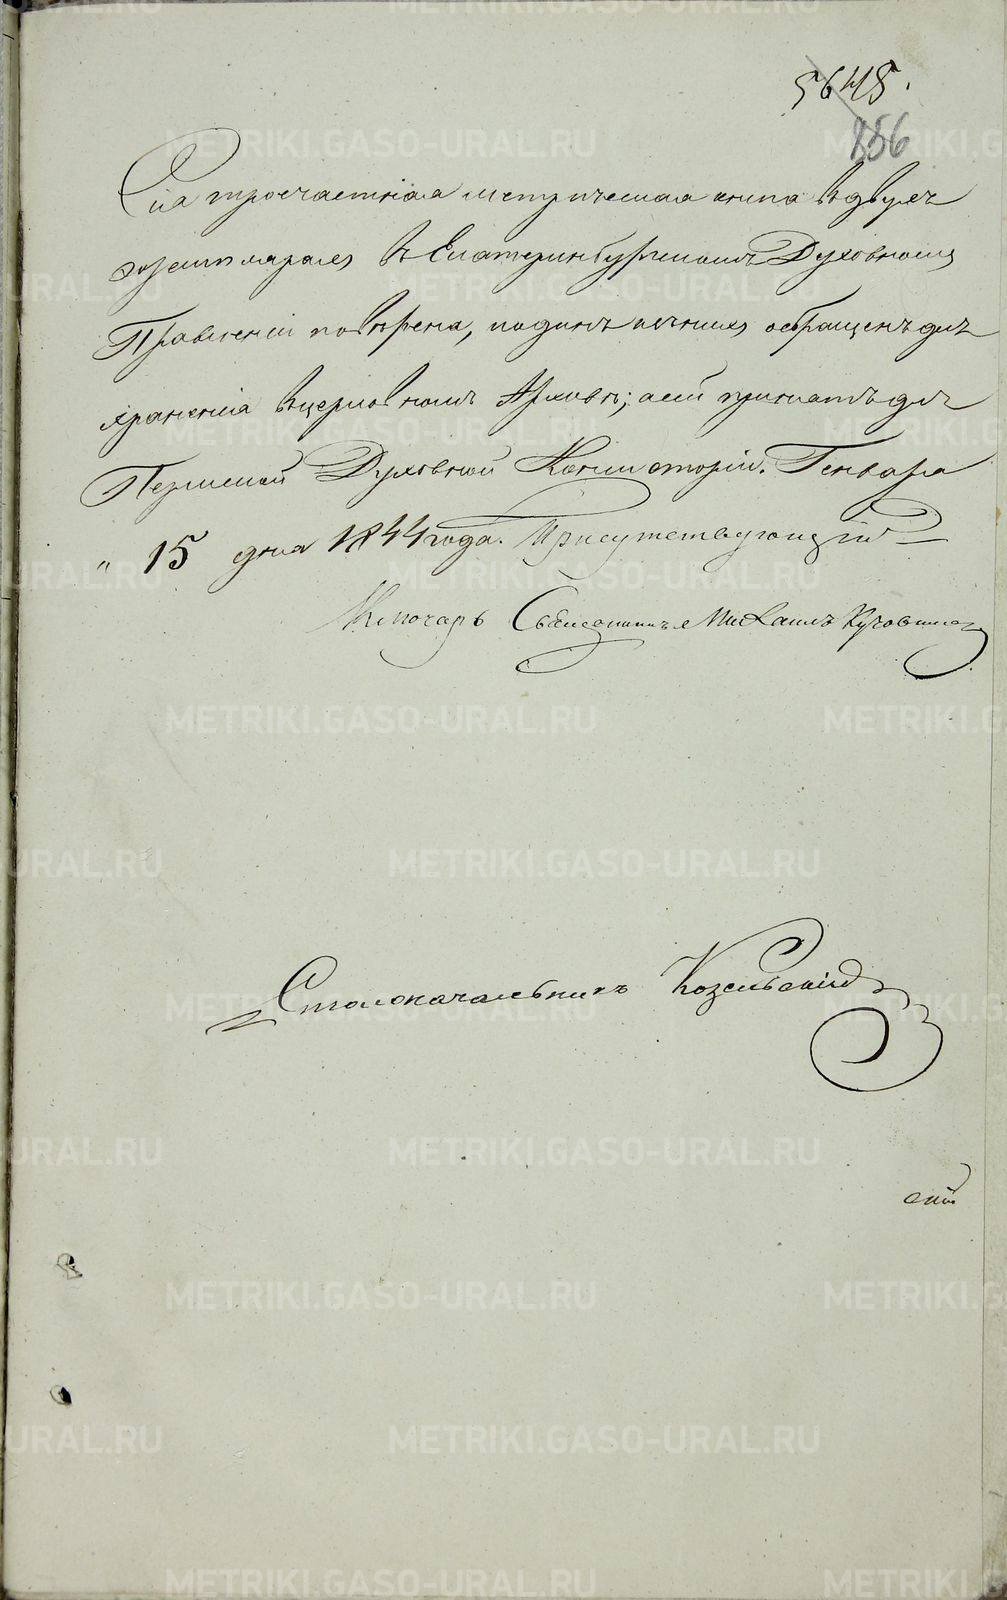 5645.
856
Сія троечастная метрическая книга въ двухъ
экземплярахъ въ Екатеринбургскомъ Духовномъ
Правленіи повѣрена, и одинъ изъ нихъ обращенъ для
храненія въ церковномъ Архивѣ; а сей принятъ для
Пермской Духовной Консисторіи. Генваря
„ 15 дня 1844 года. Присутствующій
Ключарь Священникъ Михаилъ
Столоначальникъ Козельскій
METRIKI.GASO-URAL.RU